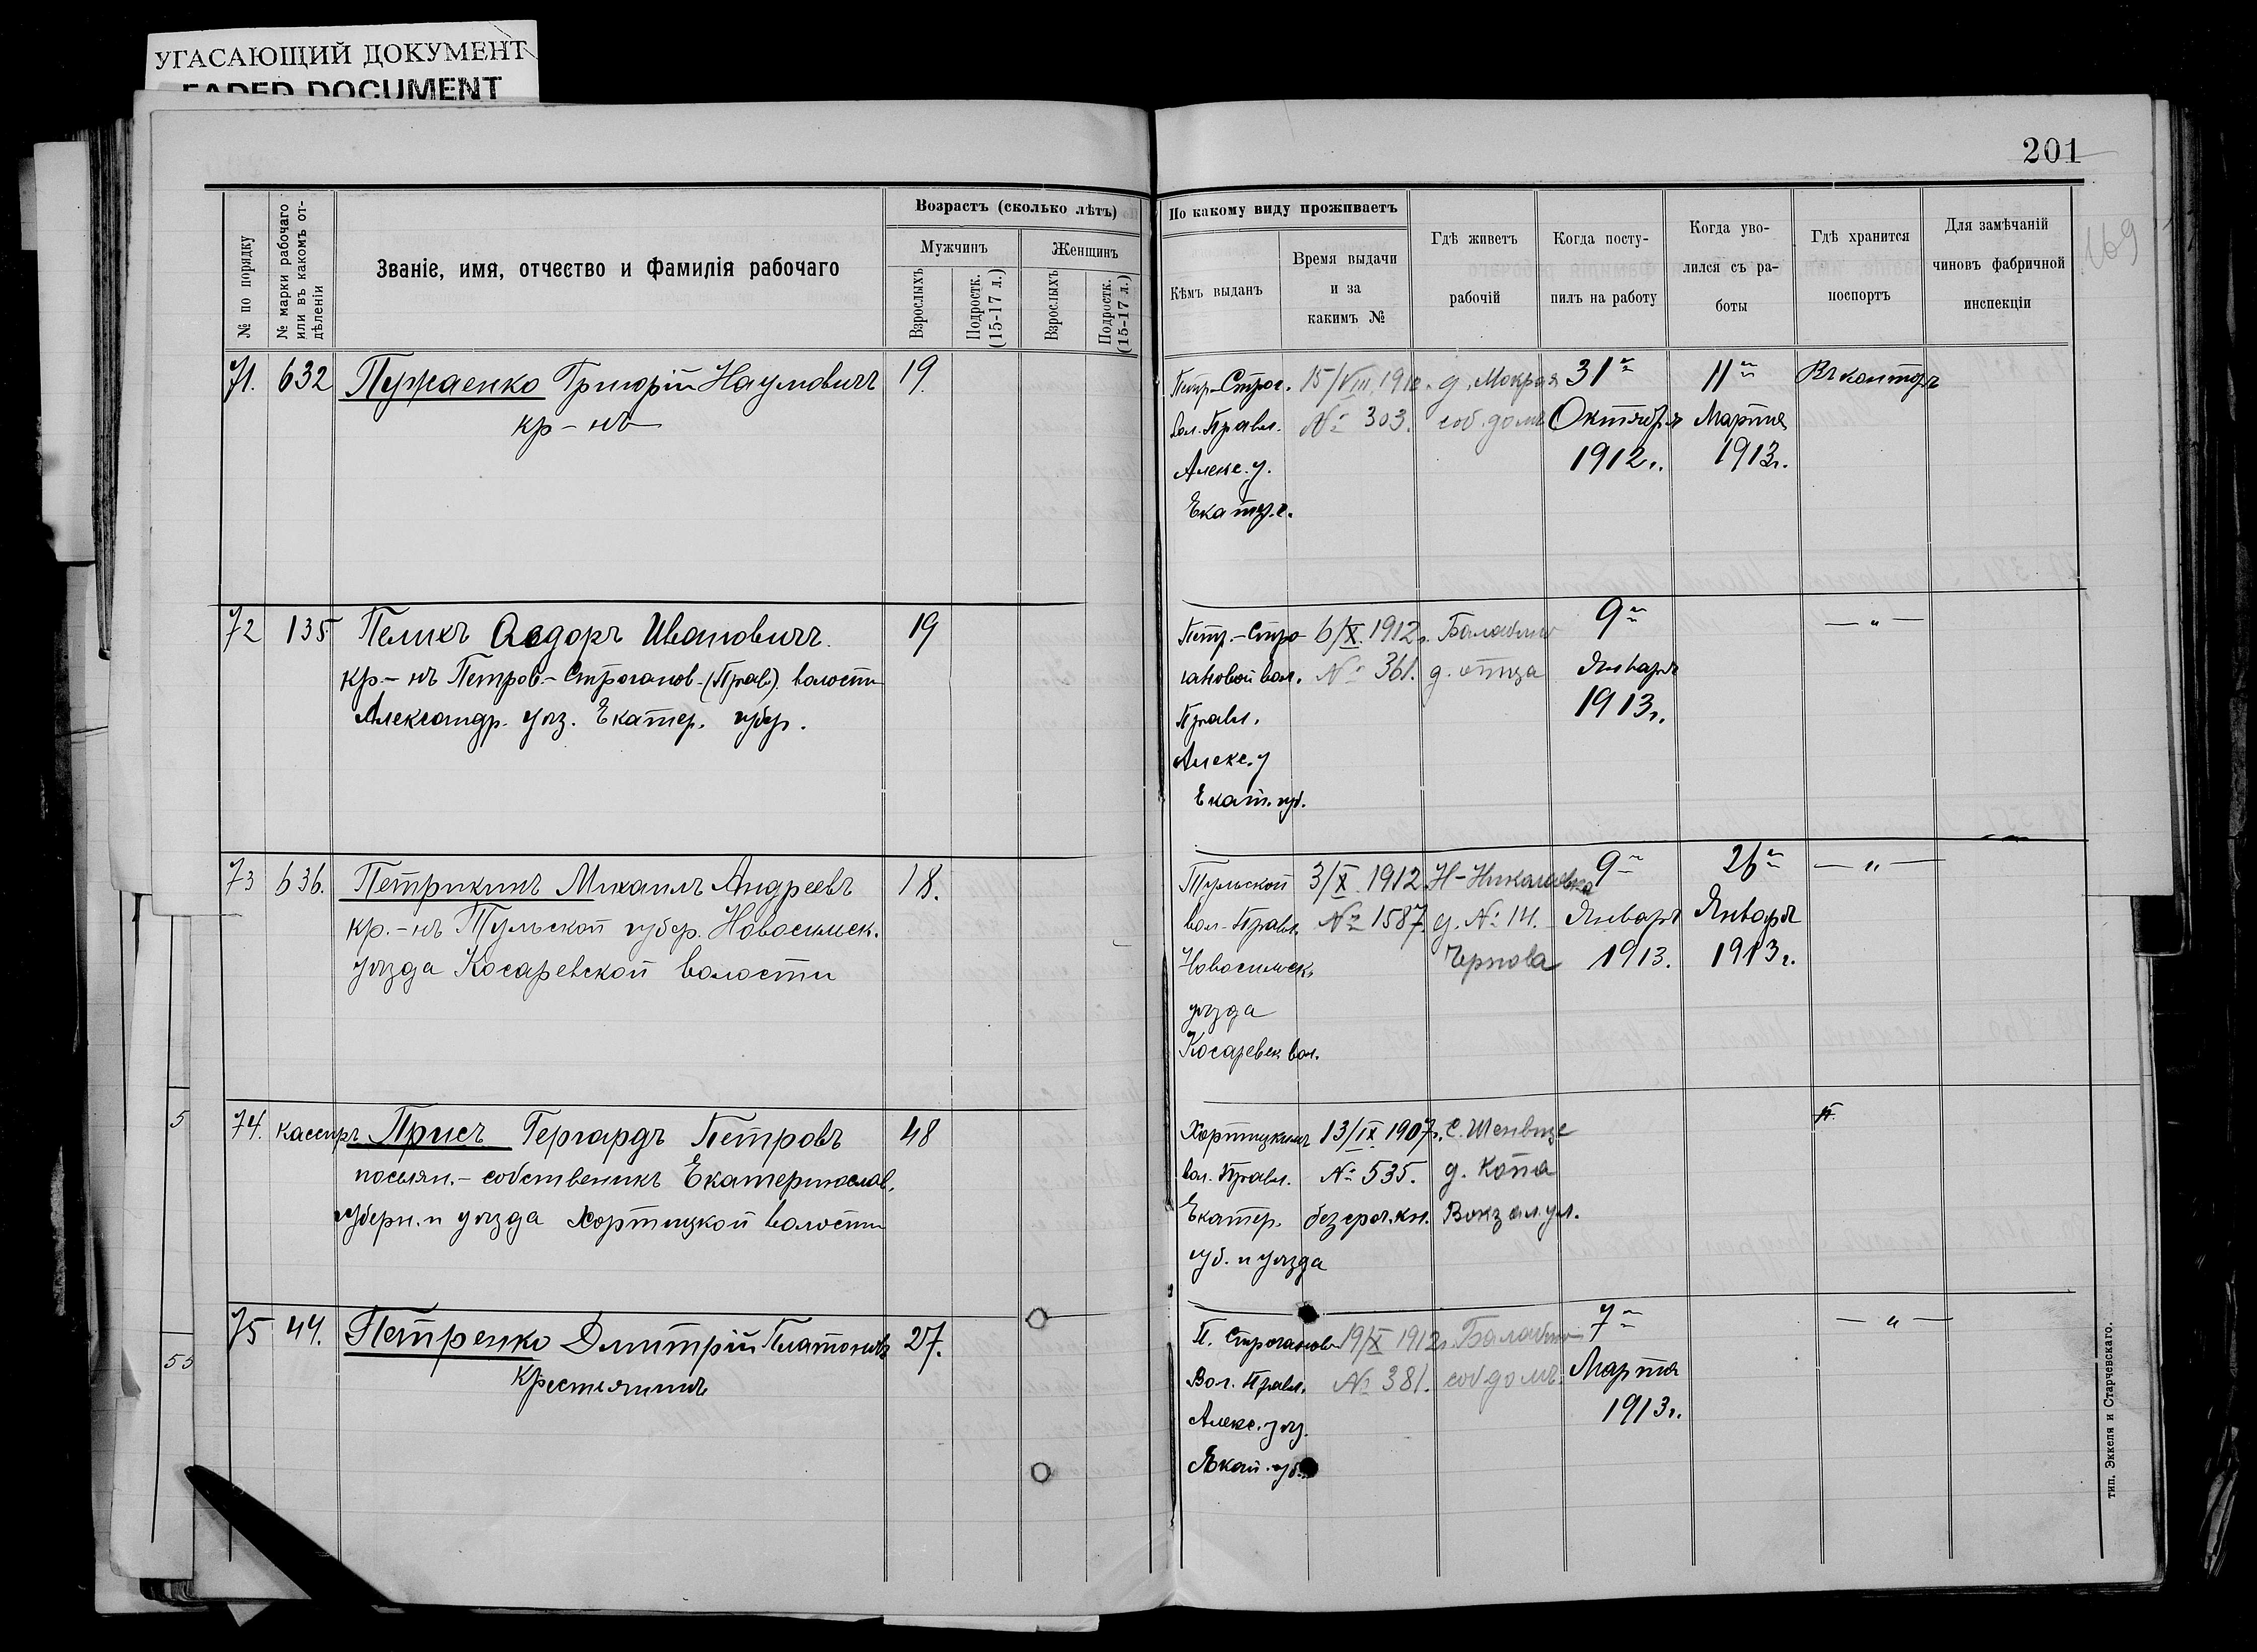 УГАСАЮЩИЙ ДОКУМЕНТ
FADED DOCUMENT
201
169
№ по порядку
№ марки рабочаго
или въ какомъ от-
дѣленіи
Званіе, имя, отчество и фамилія рабочаго
Возрастъ (сколько лѣтъ)
Мужчинъ
Женщинъ
Взрослыхъ
Подростк.
(15-17 л.)
Взрослыхъ
Подростк.
(15-17 л.)
По какому виду проживаетъ
Кѣмъ выданъ
Время выдачи
и за
какимъ №
Гдѣ живетъ
рабочій
Когда посту-
пилъ на работу
Когда уво-
лился съ ра-
боты
Гдѣ хранится
поспортъ
Для замѣчаній
чиновъ фабричной
инспекціи
71. 632 Григорій Наумовичъ 19.
кр-нъ
Петр-Строг.
вол. Правл.
Алекс. у.
Екат. г.
15/VIII 1912г.
№ 303.
д. Мокрая
соб. домъ
31го
Октября
1912г.
11го
Марта
1913г.
Въ конторѣ
72 135 Пелихъ Ѳедоръ Ивановичъ. 19
кр-нъ Петров.-Строганов-(Прав). волости
Александр. уѣз. Екатер. губер.
Петр.-Стро
гановой вол.
Правл.
Алекс. у
Екат. губ.
6/X 1912г.
№ 361.
Балабино
д. отца
9го
Января
1913г.
— " —
73 636. Петрикинъ Михаилъ Андреевъ 18.
кр.-нъ Тульской губер. Новосильск.
уѣзда Косаревской волости
Тульской
вол. Правл.
Новосильск.
уѣзда
Косаревск. вол.
3/X 1912
№ 1587
Н-Николаевка
д. № 14.
Чернова
9го
Января
1913.
26го
Января
1913г.
— " —
74. кассиръ Присъ Гергардъ Петровъ 48
посѣлян.-собственикъ Екатеринослав.
губерн. и уѣзда Хортицкой волости
Хортицкимъ
вол. Правл.
Екатер.
губ. и уѣзда
13/IX 1907г.
№ 535.
безсроч. кн.
С. Шенвизе
д. Копа
Вокзал. ул.
75 44. Петренко Дмитрій Платоновъ 27.
Крестьянинъ
П. Строганов
Вол. Правл.
Алекс. уѣз.
Екат. губ.
19/X 1912г.
№ 381.
Балабино
соб домъ.
7го
Марта
1913г.
— " —
5
55
тип. Эккеля и Старчевскаго.